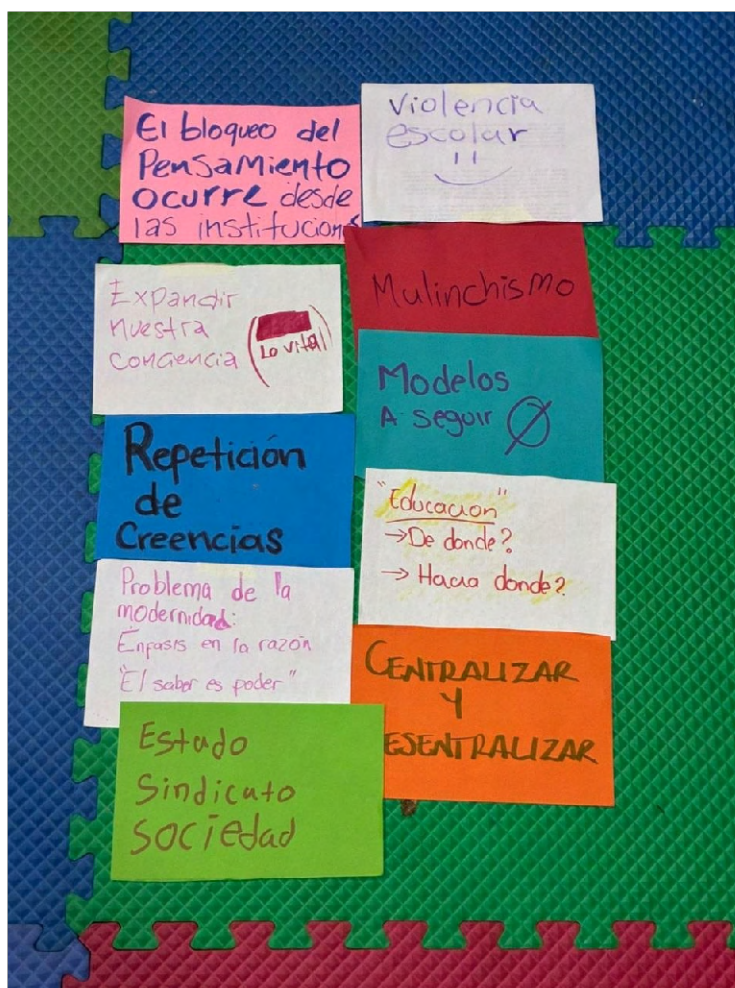 El bloqueo del
Pensamiento
ocurre desde
las institucion
Expandir
nuestra
conciencia
(Lo vital)
Repetición
de
Creencias
Problema de la
modernidad:
Enfasis en la razón
"El saber es poder"
Estado
Sindicato
Sociedad
Violencia
escolar
Mulinchismo
Modelos
A seguir
"Educacion"
→ De donde?
→ Hacia donde?
CENTRALIZAR
Y
ESENTRALIZAR